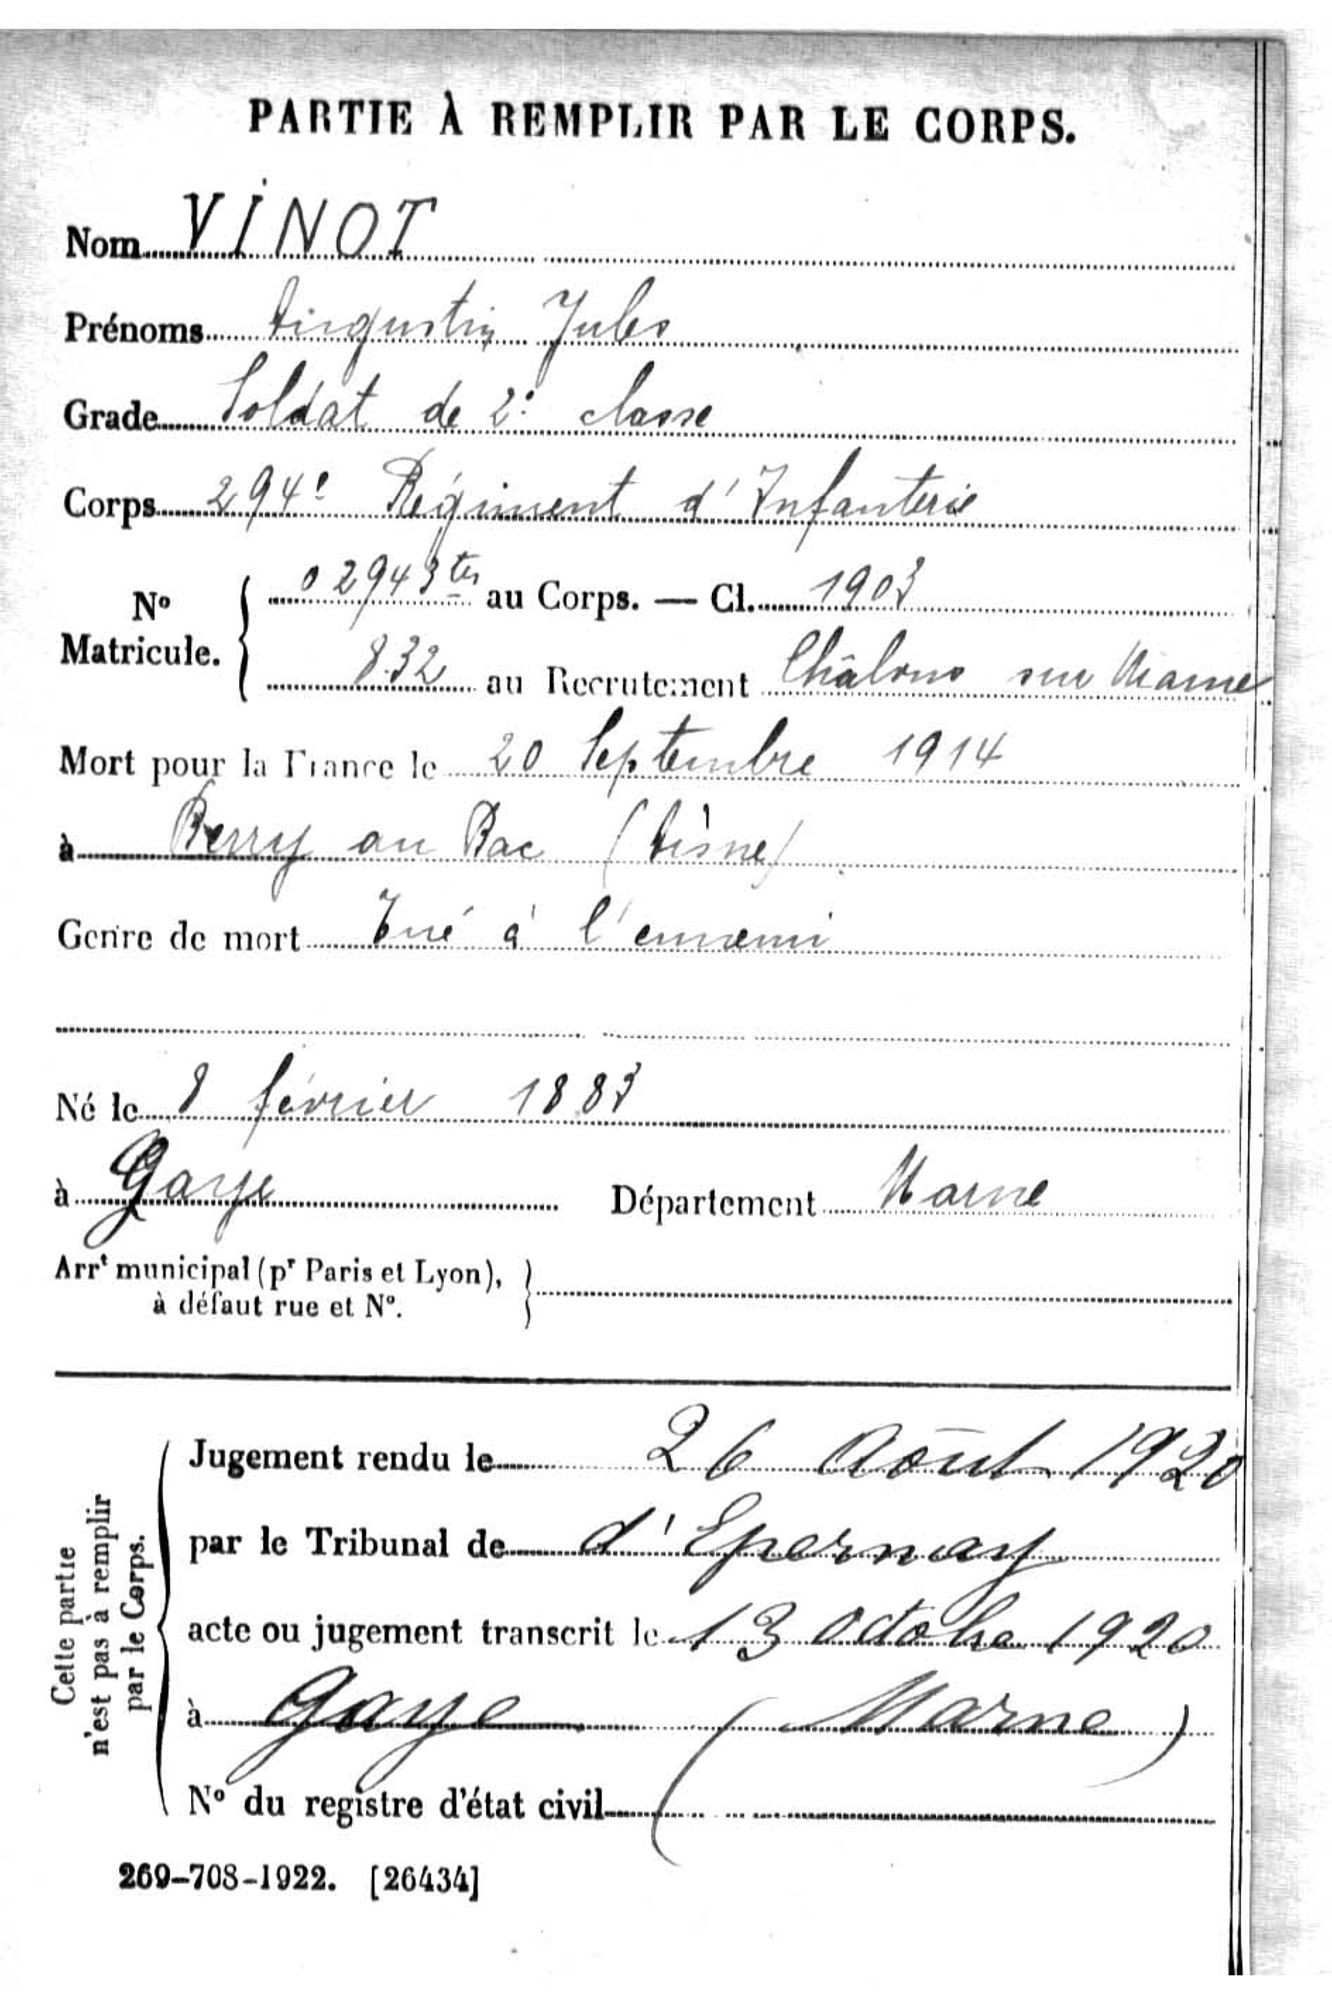 PARTIE À REMPLIR PAR LE CORPS.
Nom VINOT
Prénoms Augustin Jules
Grade Soldat de 2e classe
Corps 294e Régiment d'Infanterie
No Matricule. { 02943 ter au Corps. — Cl. 1903
832 au Recrutement Châlons sur Marne
Mort pour la France le 20 Septembre 1914
à Berry au Bac (Aisne)
Genre de mort Tué à l'ennemi
Né le 8 février 1883
à Gaye Département Marne
Arrt municipal (pr Paris et Lyon), }
à défaut rue et No.
Cette partie
n'est pas à remplir
par le Corps.
Jugement rendu le 26 Août 1920
par le Tribunal de d'Epernay
acte ou jugement transcrit le 13 Octobre 1920
à Gaye (Marne)
No du registre d'état civil
269-708-1922. [26434]